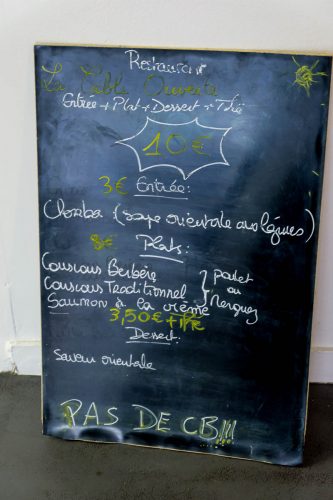 Restaurant
La Table Ouverte
Entrée + Plat + Dessert + Thé
10€
3€ Entrée:
Chorba (soupe orientale aux légumes)
8€ Plats:
Couscous Berbère } poulet
Couscous Traditionnel ou
Saumon à la crème Merguez
3,50€ + thé
Dessert:
Saveur orientale
PAS DE CB!!!